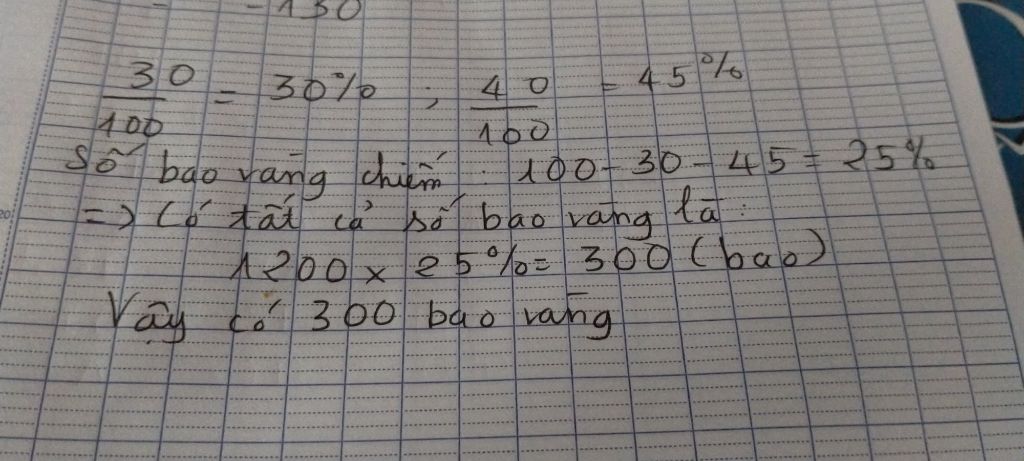 - 130
30/100 = 30% ; 40/100 = 45%
Số bao vàng chiếm : 100 - 30 - 45 = 25%
=> Có tất cả số bao vàng là :
1200 x 25% = 300 (bao)
Vậy có 300 bao vàng